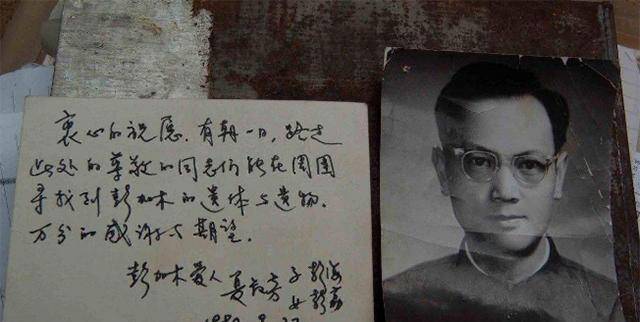 衷心的祝愿，有朝一日，路过
此处的尊敬的同志们能在周围
寻找到彭加木的遗体与遗物．
万分的感谢与期望．
彭加木爱人 夏叔芳 子 彭海
女 彭荔